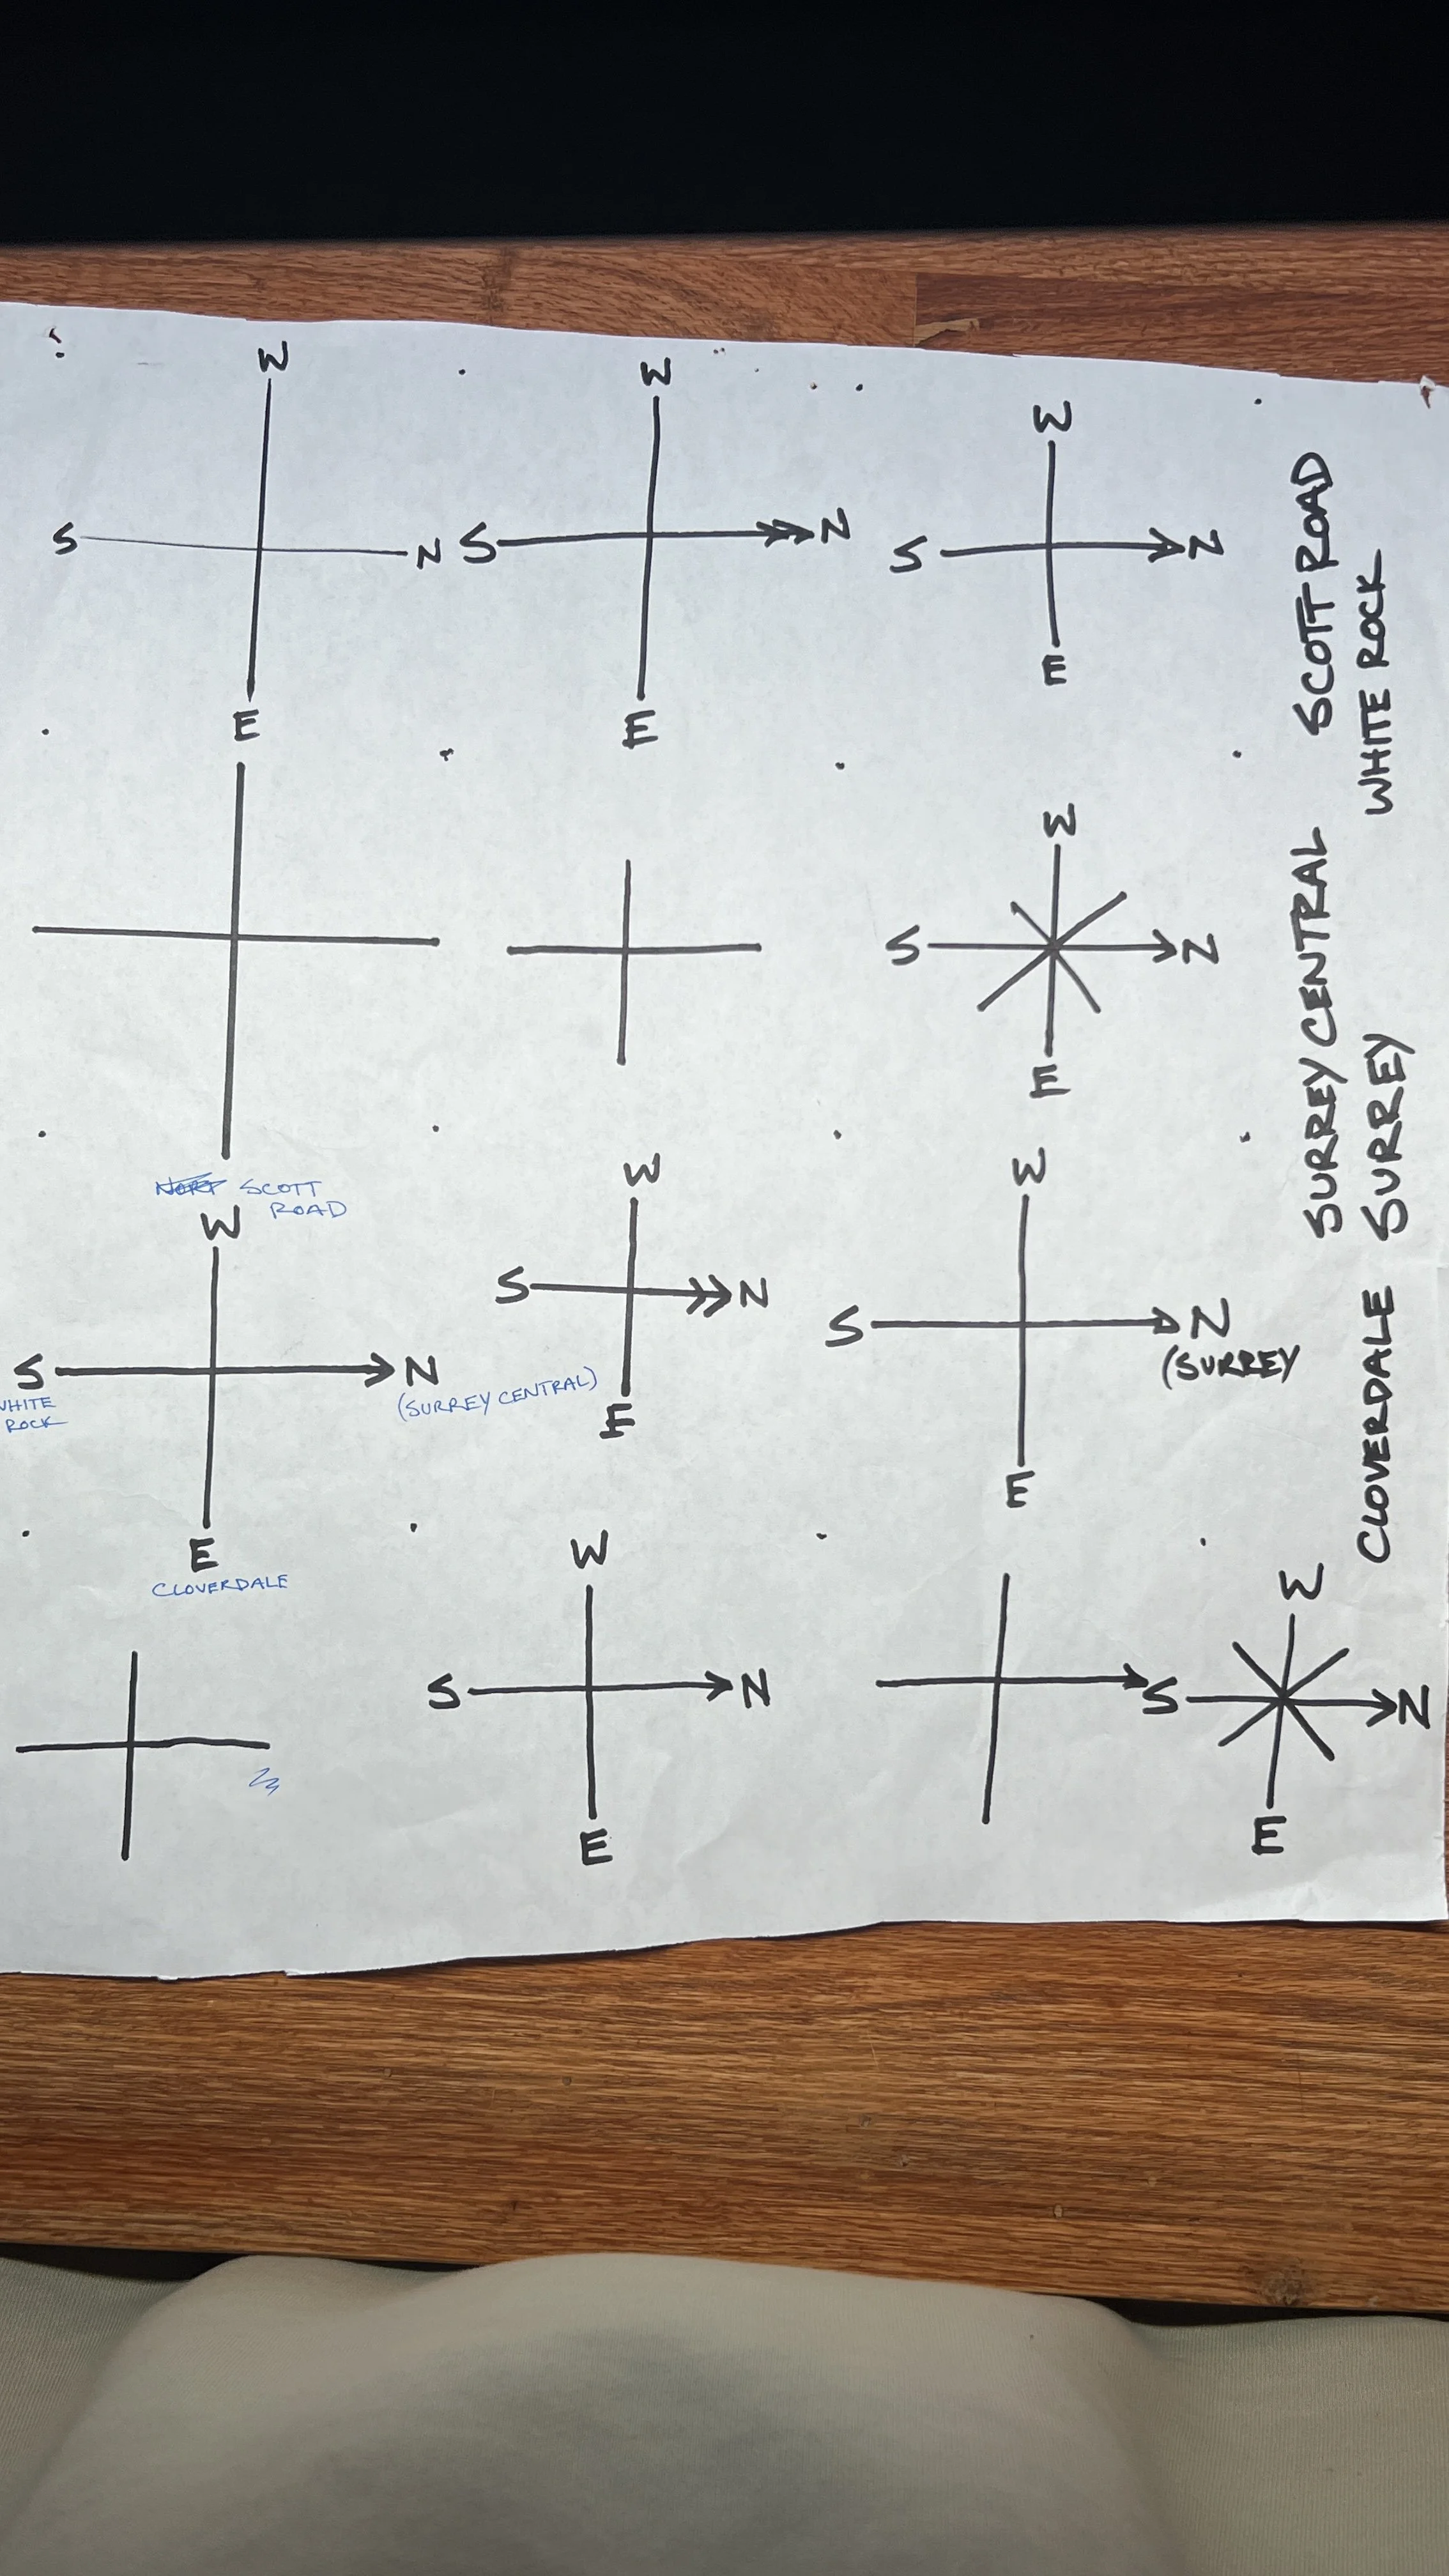 W
S
N
E
W
S
N
E
W
S
N
E
W
S
N
E
SCOTT
ROAD
W
S
N
E
WHITE
ROCK
(SURREY CENTRAL)
CLOVERDALE
W
S
N
E
W
S
N
(SURREY
E
W
S
N
E
W
S
N
E
SURREY CENTRAL SCOTT ROAD
CLOVERDALE SURREY WHITE ROCK